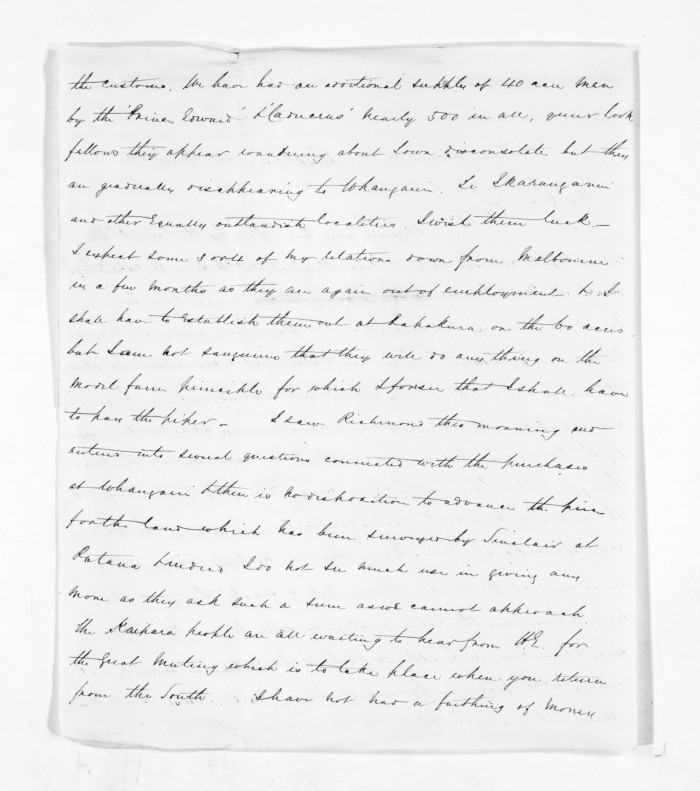 the customs. We have had an additional supply of 40 acre men
by the 'Prince Edward' & 'Caduceus' nearly 500 in all, queer look
fellows they appear wandering about Town disconsolate but they
are gradually disappearing to Whangarei.
and other Equally outlandish localities I wish them luck. —
I expect some sort of my relations down from Melbourne
in a few months as they are again out of employment & I
shall have to establish them out at Papakura on the 60 acres
but I am not sanguine that they will do any thing on the
model farm principle for which I foresee that I shall have
to pay the piper — I saw Richmond this morning and
entered into several questions connected with the purchases
at Whangarei & there is no disposition to advance the price
for the land which has been surveyed by Sinclair at
Pataua & indeed I do not see much use in giving any
more as they ask such a sum as we cannot approach.
The Kaipara people are all waiting to hear from H.E. for
the Great Meeting which is to take place when you return
from the South I have not had a farthing of Money